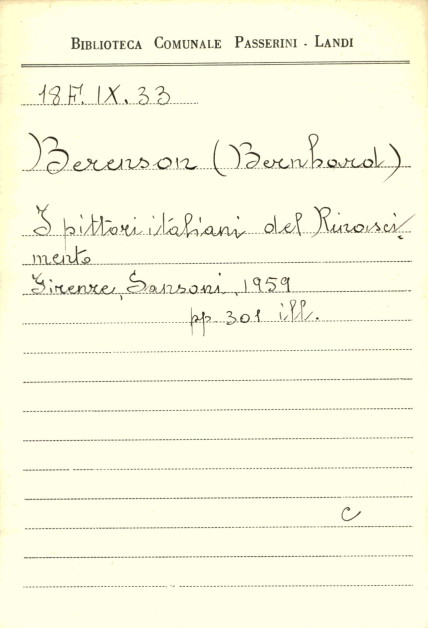 BIBLIOTECA COMUNALE PASSERINI - LANDI
18F. IX. 33
Berenson (Bernhard)
I pittori italiani del Rinasci-
mento
Firenze, Sansoni, 1959
pp 301 ill.
C